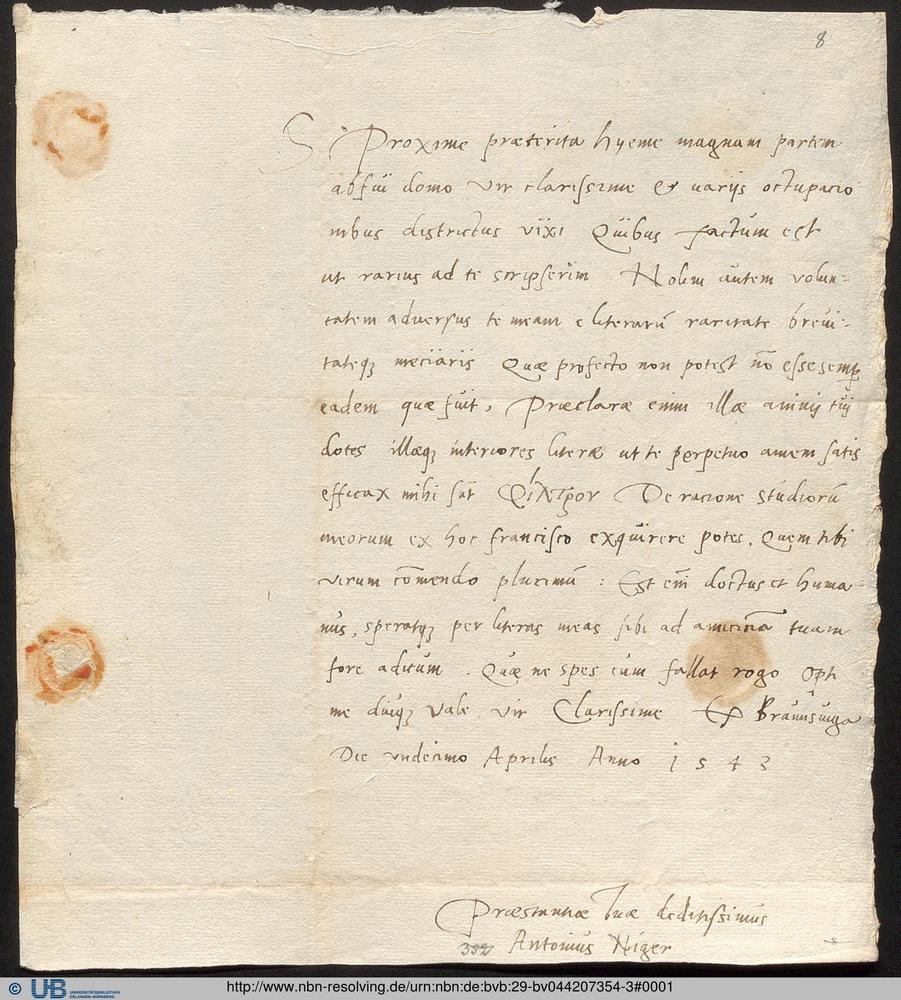 8
S. Proxime præterita hyeme magnam partem
abfui domo vir clarissime & uarijs occupacio
nibus districtus vixi Quibus factum est
ut rarius ad te scripserim Nolim autem volun-
tatem adversus te meam e literarū raritate brevi-
tateqꝫ meciaris Quæ profecto non potest nō esse semp
eadem quæ fuit, Præclaræ enim illæ animj tuj
dotes illæqꝫ interiores literæ ut te perpetuo amem satis
efficax mihi sūt De racione studiorū
meorum ex hoc francisco exquirere potes. Quem tibi
virum cōmendo plurimū : Est em̄ doctus et huma
nus, speratqꝫ per literas meas sibi ad amicitiā tuam
fore aditum . Quæ ne spes eum fallat rogo Opti
me diuqꝫ Vale vir Clarissime Ex Braunsuiga
Die vndecimo Aprilis Anno 1543
Præstantiæ Tuæ deditissimus
Antonius Niger
352
© UB UNIVERSITÄTSBIBLIOTHEK ERLANGEN-NÜRNBERG
http://www.nbn-resolving.de/urn:nbn:de:bvb:29-bv044207354-3#0001